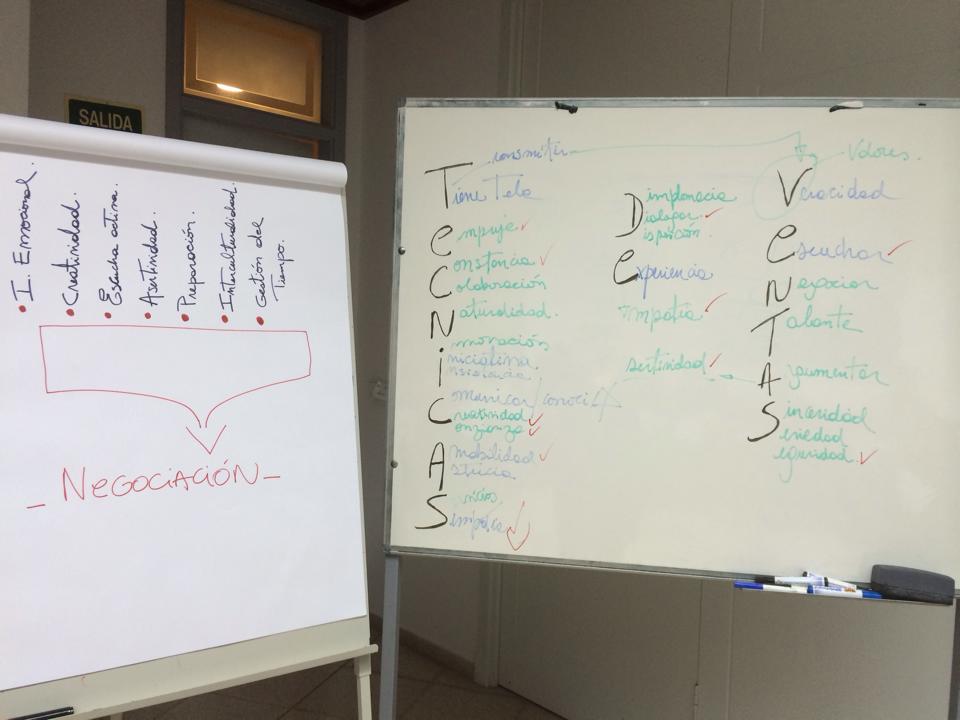 SALIDA
• I. Emocional.
• Creatividad.
• Escucha activa.
• Asertividad.
• Preparación.
• Interculturalidad.
• Gestión del
Tiempo.
- NEGOCIACIÓN -
Transmitir
Tiene Tela
empuje
Constancia
Colaboración
Naturalidad.
innovación
iniciativa
Comunicar / conoci
Creatividad
Confianza
Amabilidad
Astucia
Simpatía
Dimplomacia
Dialogar
Disposición.
experiencia
empatía
asertividad
Valores.
Veracidad
escuchar
Negociar
Talante
Aaumentar
Sinceridad
Seriedad
Seguridad